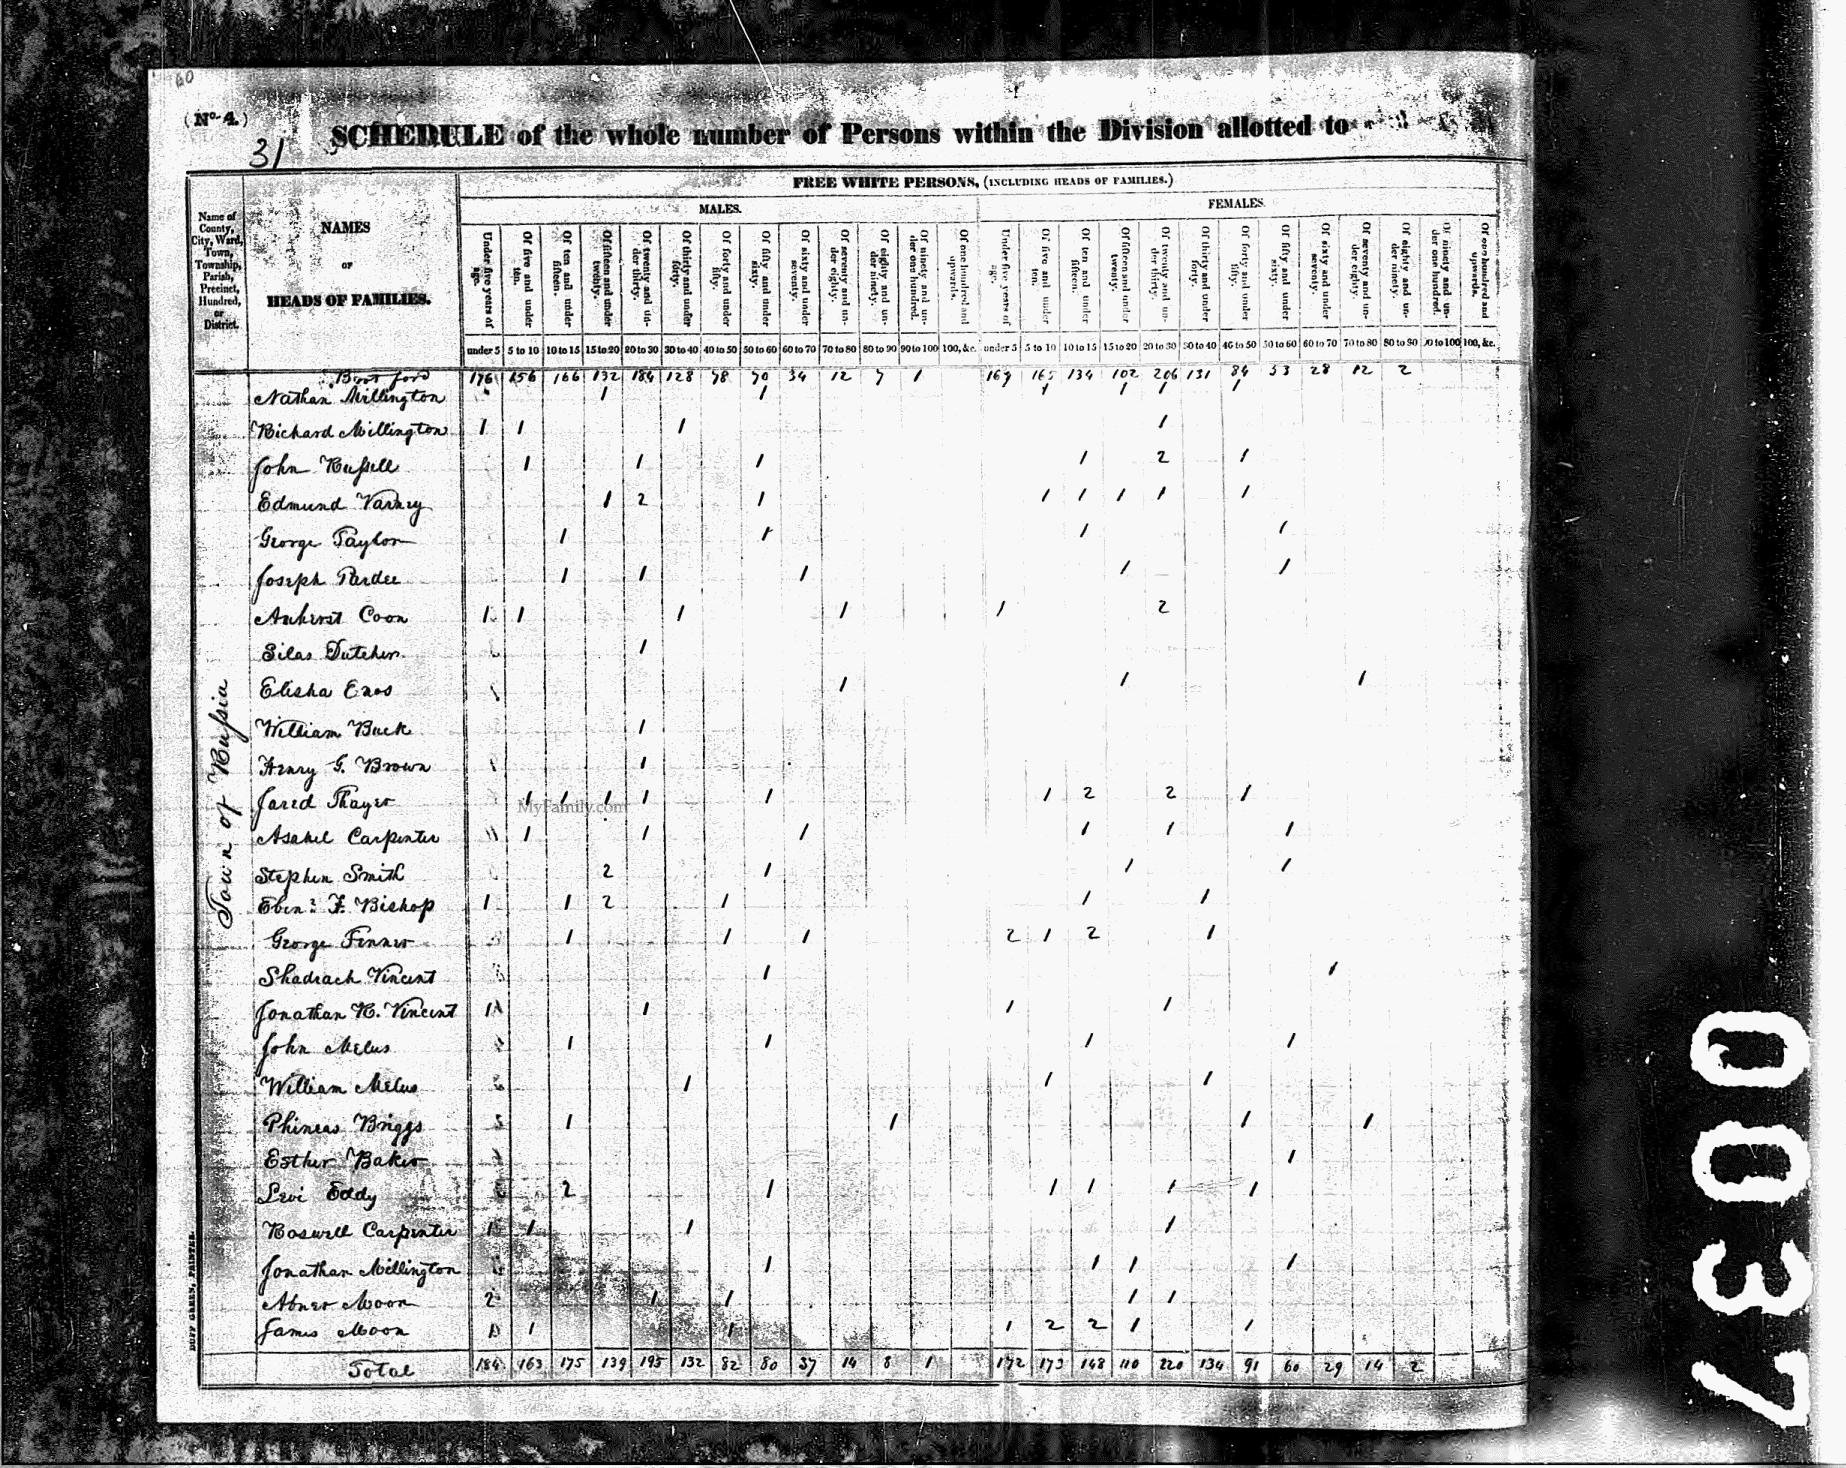 60
(No. 4.)
31
SCHEDULE of the whole number of Persons within the Division allotted to
FREE WHITE PERSONS, (INCLUDING HEADS OF FAMILIES.)
MALES. FEMALES.
Name of County, City, Ward, Town, Township, Parish, Precinct, Hundred, or District.
NAMES OF HEADS OF FAMILIES.
Under five years of age. Of five and under ten. Of ten and under fifteen. Of fifteen and under twenty. Of twenty and under thirty. Of thirty and under forty. Of forty and under fifty. Of fifty and under sixty. Of sixty and under seventy. Of seventy and under eighty. Of eighty and under ninety. Of ninety and under one hundred. Of one hundred and upwards. Under five years of age. Of five and under ten. Of ten and under fifteen. Of fifteen and under twenty. Of twenty and under thirty. Of thirty and under forty. Of forty and under fifty. Of fifty and under sixty. Of sixty and under seventy. Of seventy and under eighty. Of eighty and under ninety. Of ninety and under one hundred. Of one hundred and upwards.
under 5 5 to 10 10 to 15 15 to 20 20 to 30 30 to 40 40 to 50 50 to 60 60 to 70 70 to 80 80 to 90 90 to 100 100, &c. under 5 5 to 10 10 to 15 15 to 20 20 to 30 30 to 40 40 to 50 50 to 60 60 to 70 70 to 80 80 to 90 90 to 100 100, &c.
Brot ford 176 156 166 132 184 128 78 70 34 12 7 1 169 165 134 102 206 131 84 53 28 12 2
Nathan Millington 1 1 1 1 1 1
Richard Millington 1 1 1 1
John Russell 1 1 1 1 2 1
Edmund Varney 1 2 1 1 1 1 1 1
George Taylor 1 1 1 1
Joseph Pardee 1 1 1 1 1
Amherst Coon 1 1 1 1 1 2
Silas Dutcher 1
Elisha Enos 1 1 1
William Buck 1
Henry G. Brown 1
Jared Thayer 1 1 1 1 1 1 2 2 1
Asahel Carpenter 1 1 1 1 1 1
Stephen Smith 2 1 1 1
Ebenr F. Bishop 1 1 2 1 1 1
George Fenner 1 1 1 2 1 2 1
Shadrach Vincent 1 1
Jonathan R. Vincent 1 1 1 1
John Melus 1 1 1 1
William Melus 1 1 1
Phineas Briggs 1 1 1 1
Esther Baker 1
Levi Eddy 2 1 1 1 1 1
Roswell Carpenter 1 1 1 1
Jonathan Millington 1 1 1 1
Abner Moon 2 1 1 1 1
James Moon 1 1 1 1 2 2 1 1
Total 184 163 175 139 195 132 82 80 37 14 8 1 172 173 148 110 220 134 91 60 29 14 2
Town of Russia
DUFF GREEN, PRINTER.
MyFamily.com
0037